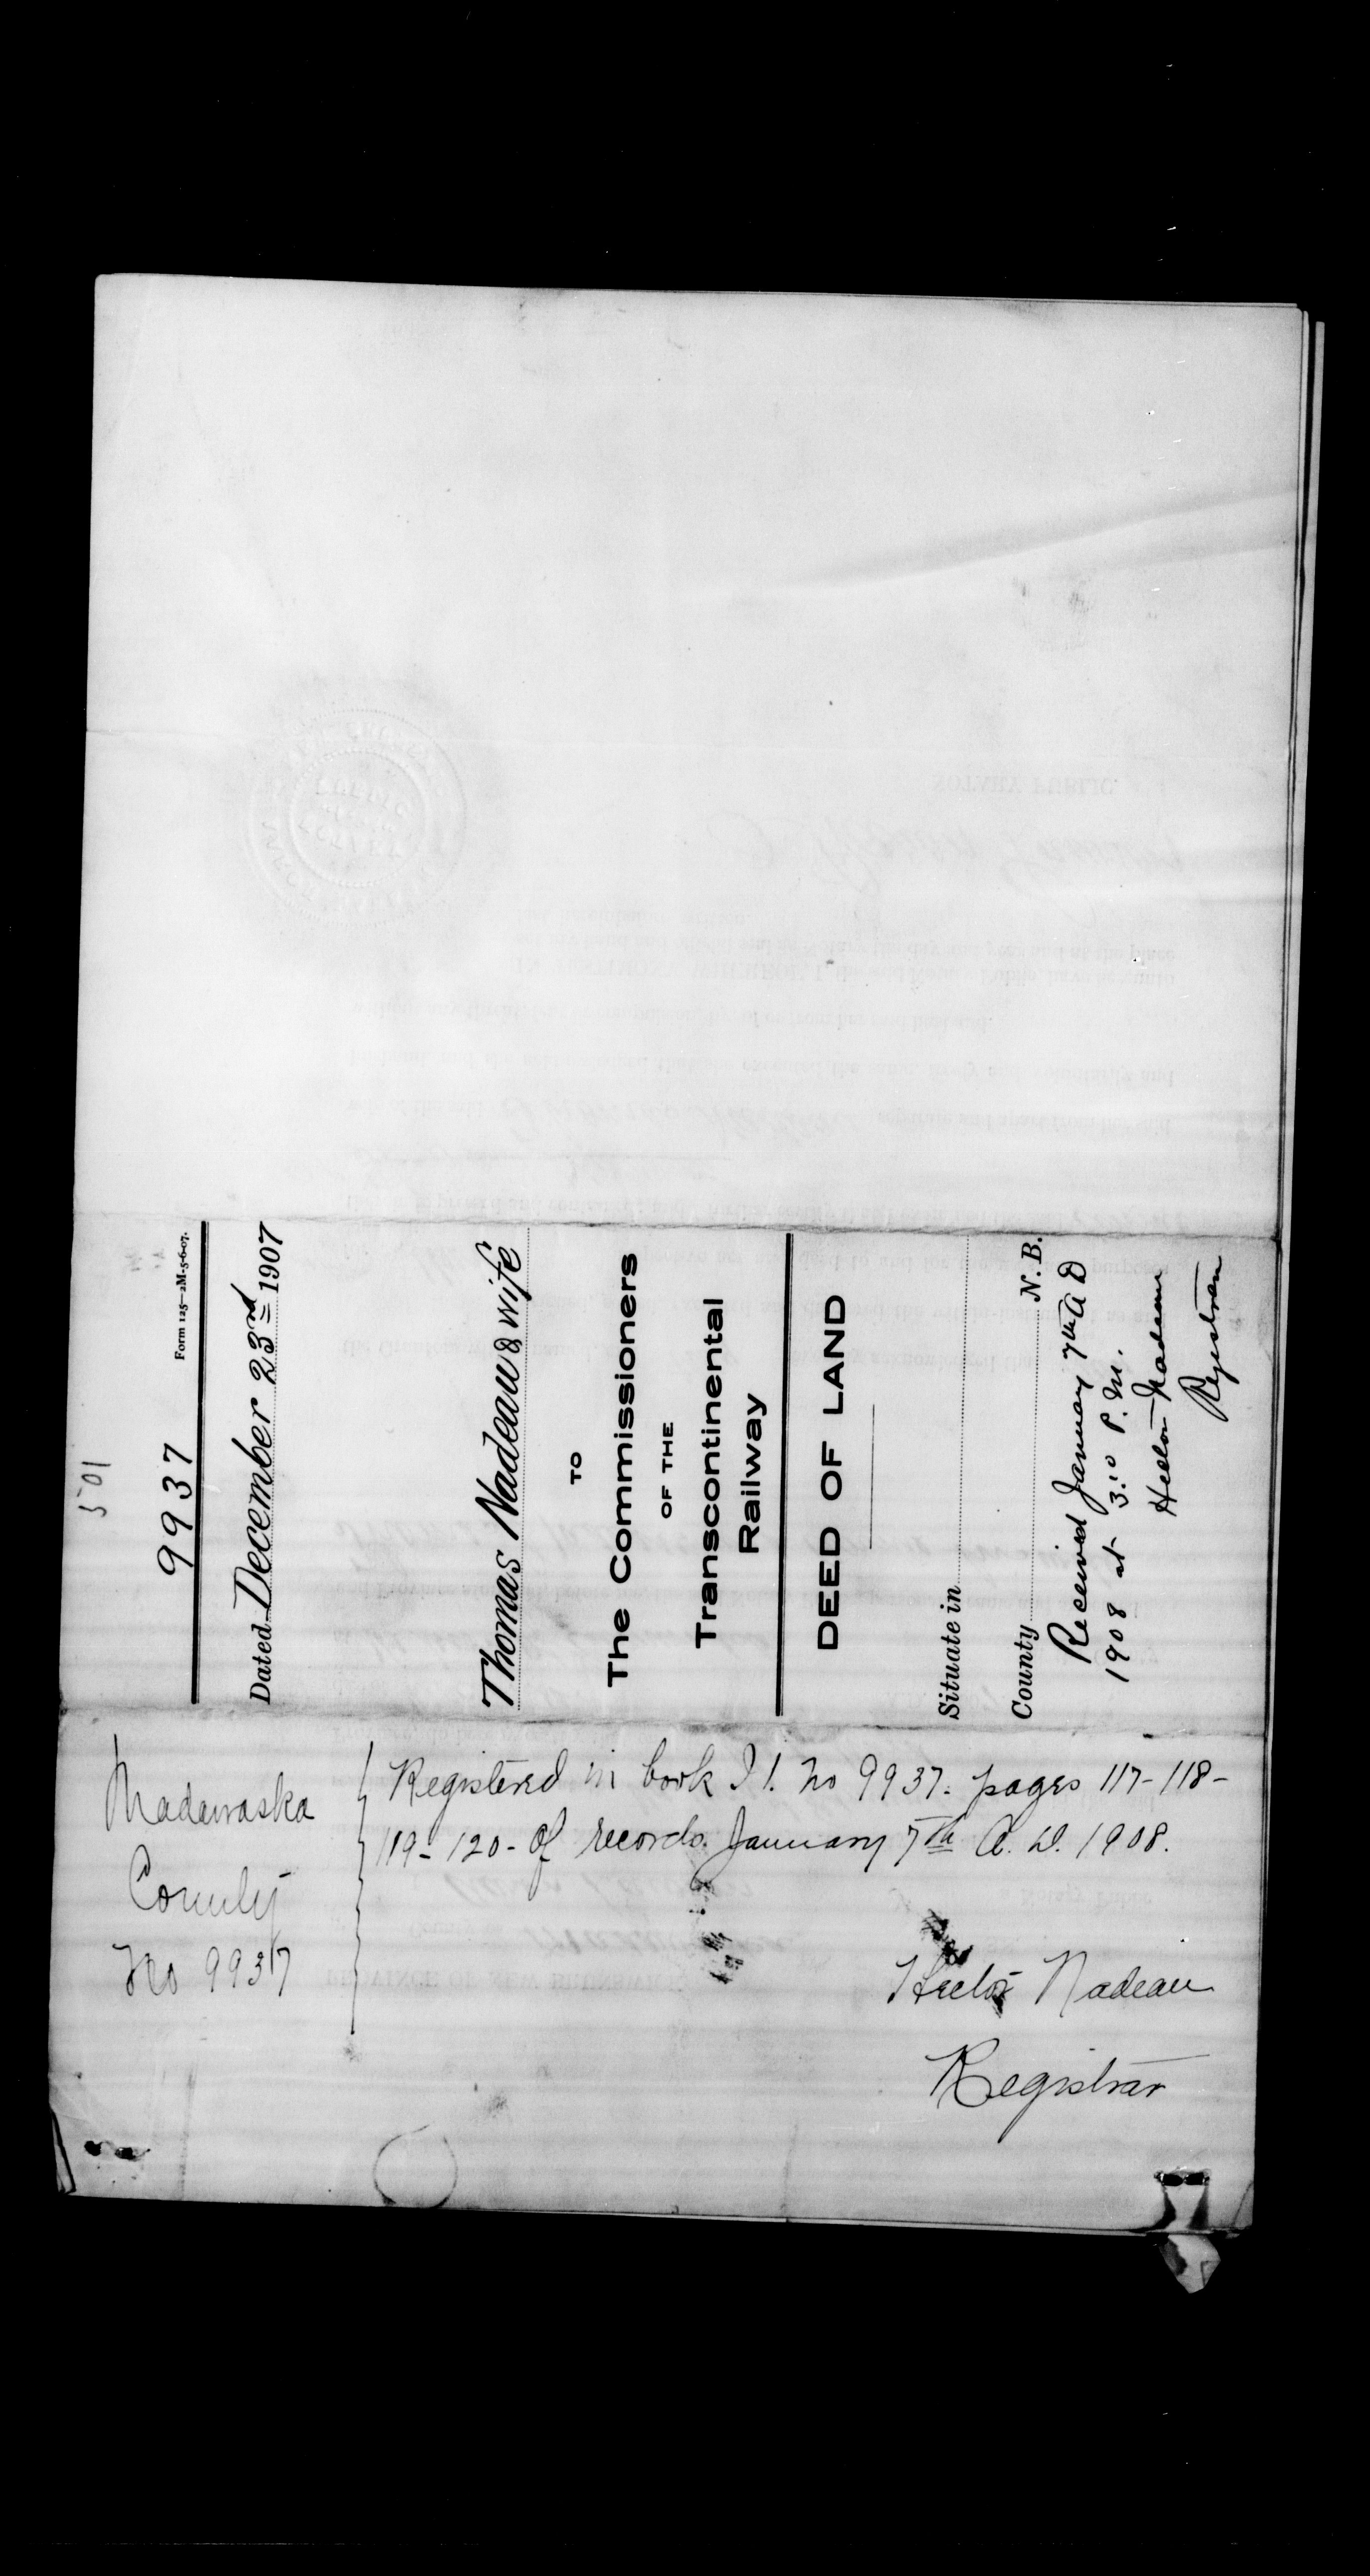 501
9937
Form 125—2M-5-6-07.
Dated December 23rd 1907
Thomas Nadeau & wife
TO
The Commissioners
OF THE
Transcontinental
Railway
DEED OF LAND
Situate in
County N. B.
Received January 7th A D
1908 at 3.10 P. M.
Hector Nadeau
Registrar
Madawaska
County
No 9937
Registered in book I 1. No 9937. pages 117-118-
119-120- of records. January 7th A. D. 1908.
Hector Nadeau
Registrar
NOTARY PUBLIC.
PROVINCE OF NEW BRUNSWICK